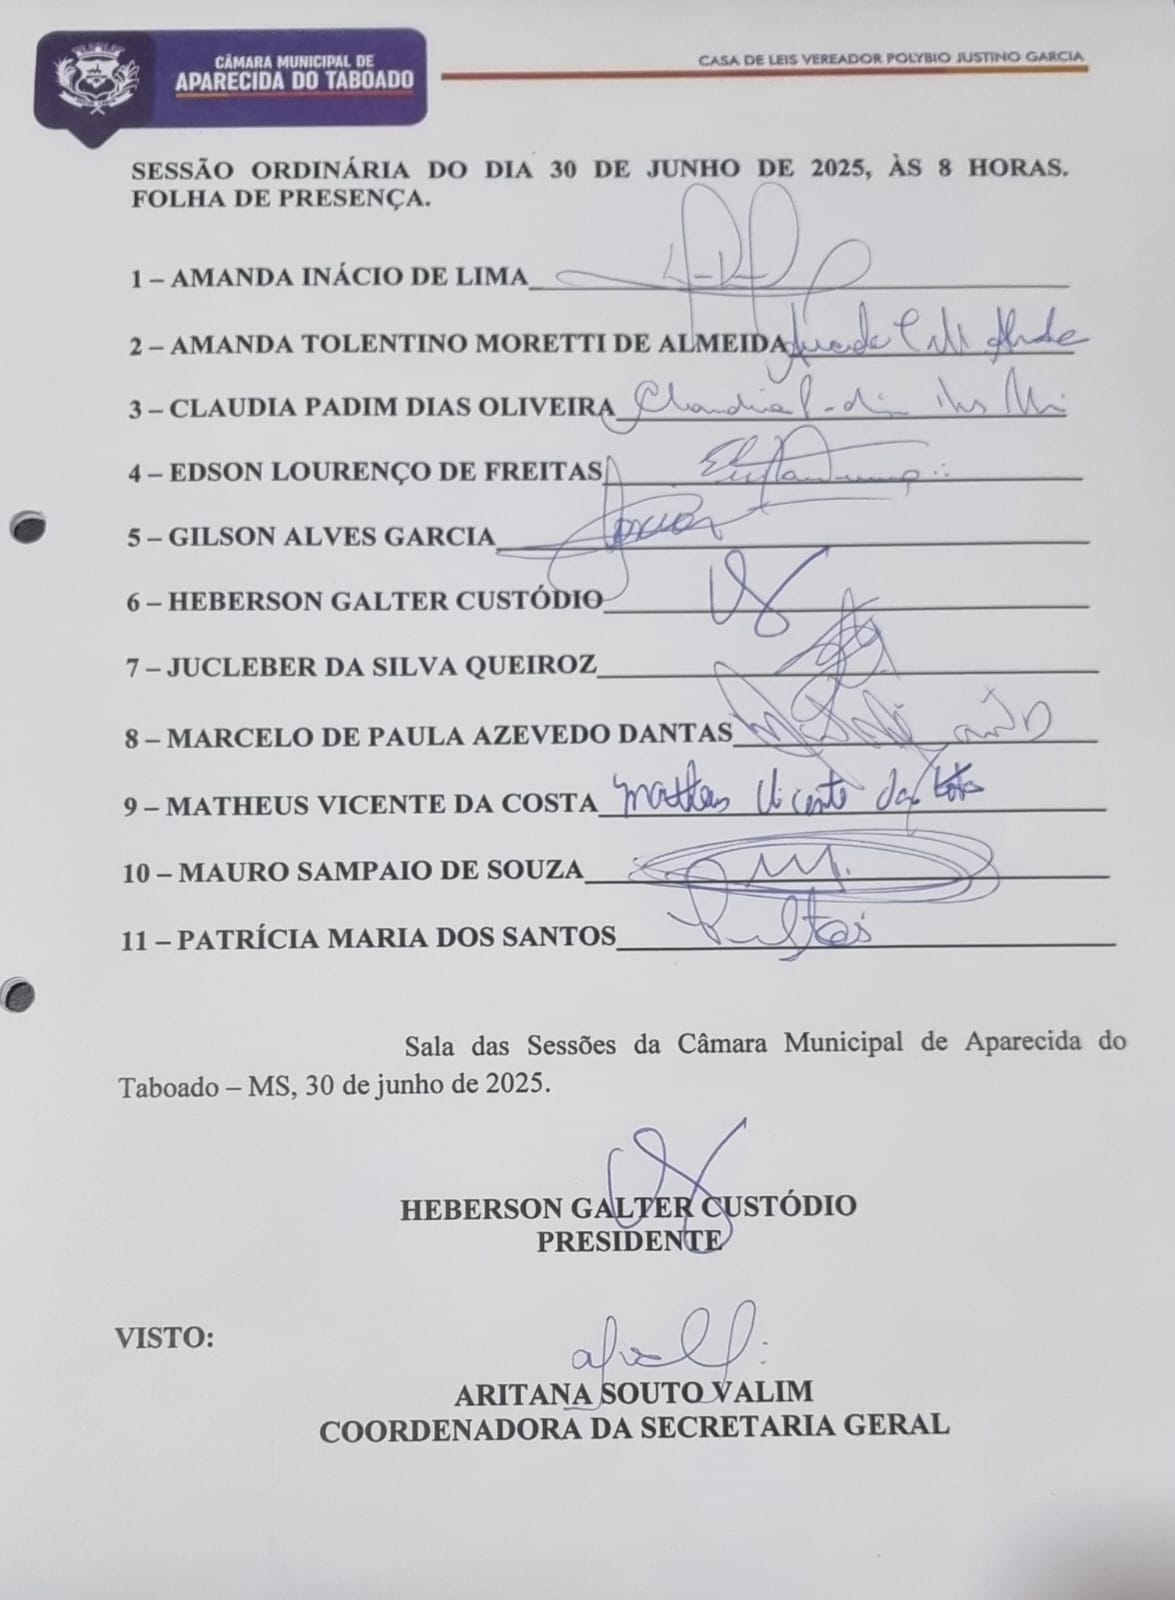 CÂMARA MUNICIPAL DE
APARECIDA DO TABOADO
CASA DE LEIS VEREADOR POLYBIO JUSTINO GARCIA
SESSÃO ORDINÁRIA DO DIA 30 DE JUNHO DE 2025, ÀS 8 HORAS.
FOLHA DE PRESENÇA.
1 – AMANDA INÁCIO DE LIMA
2 – AMANDA TOLENTINO MORETTI DE ALMEIDA
3 – CLAUDIA PADIM DIAS OLIVEIRA Claudia
4 – EDSON LOURENÇO DE FREITAS
5 – GILSON ALVES GARCIA
6 – HEBERSON GALTER CUSTÓDIO
7 – JUCLEBER DA SILVA QUEIROZ
8 – MARCELO DE PAULA AZEVEDO DANTAS
9 – MATHEUS VICENTE DA COSTA Matheus Vicente da Costa
10 – MAURO SAMPAIO DE SOUZA M.
11 – PATRÍCIA MARIA DOS SANTOS
Sala das Sessões da Câmara Municipal de Aparecida do
Taboado – MS, 30 de junho de 2025.
HEBERSON GALTER CUSTÓDIO
PRESIDENTE
VISTO:
ARITANA SOUTO VALIM
COORDENADORA DA SECRETARIA GERAL